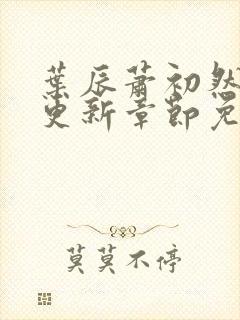 葉辰蕭初然
更新章節免
莫莫不停